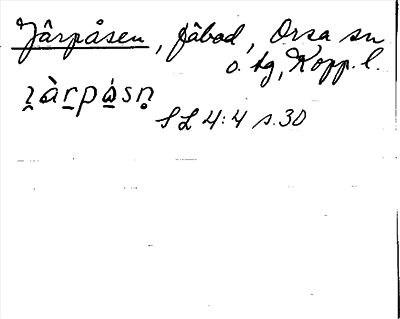 Jårpåsen, fäbod, Orsa sn
o. tg, Kopp. l.
SL 4:4 s. 30